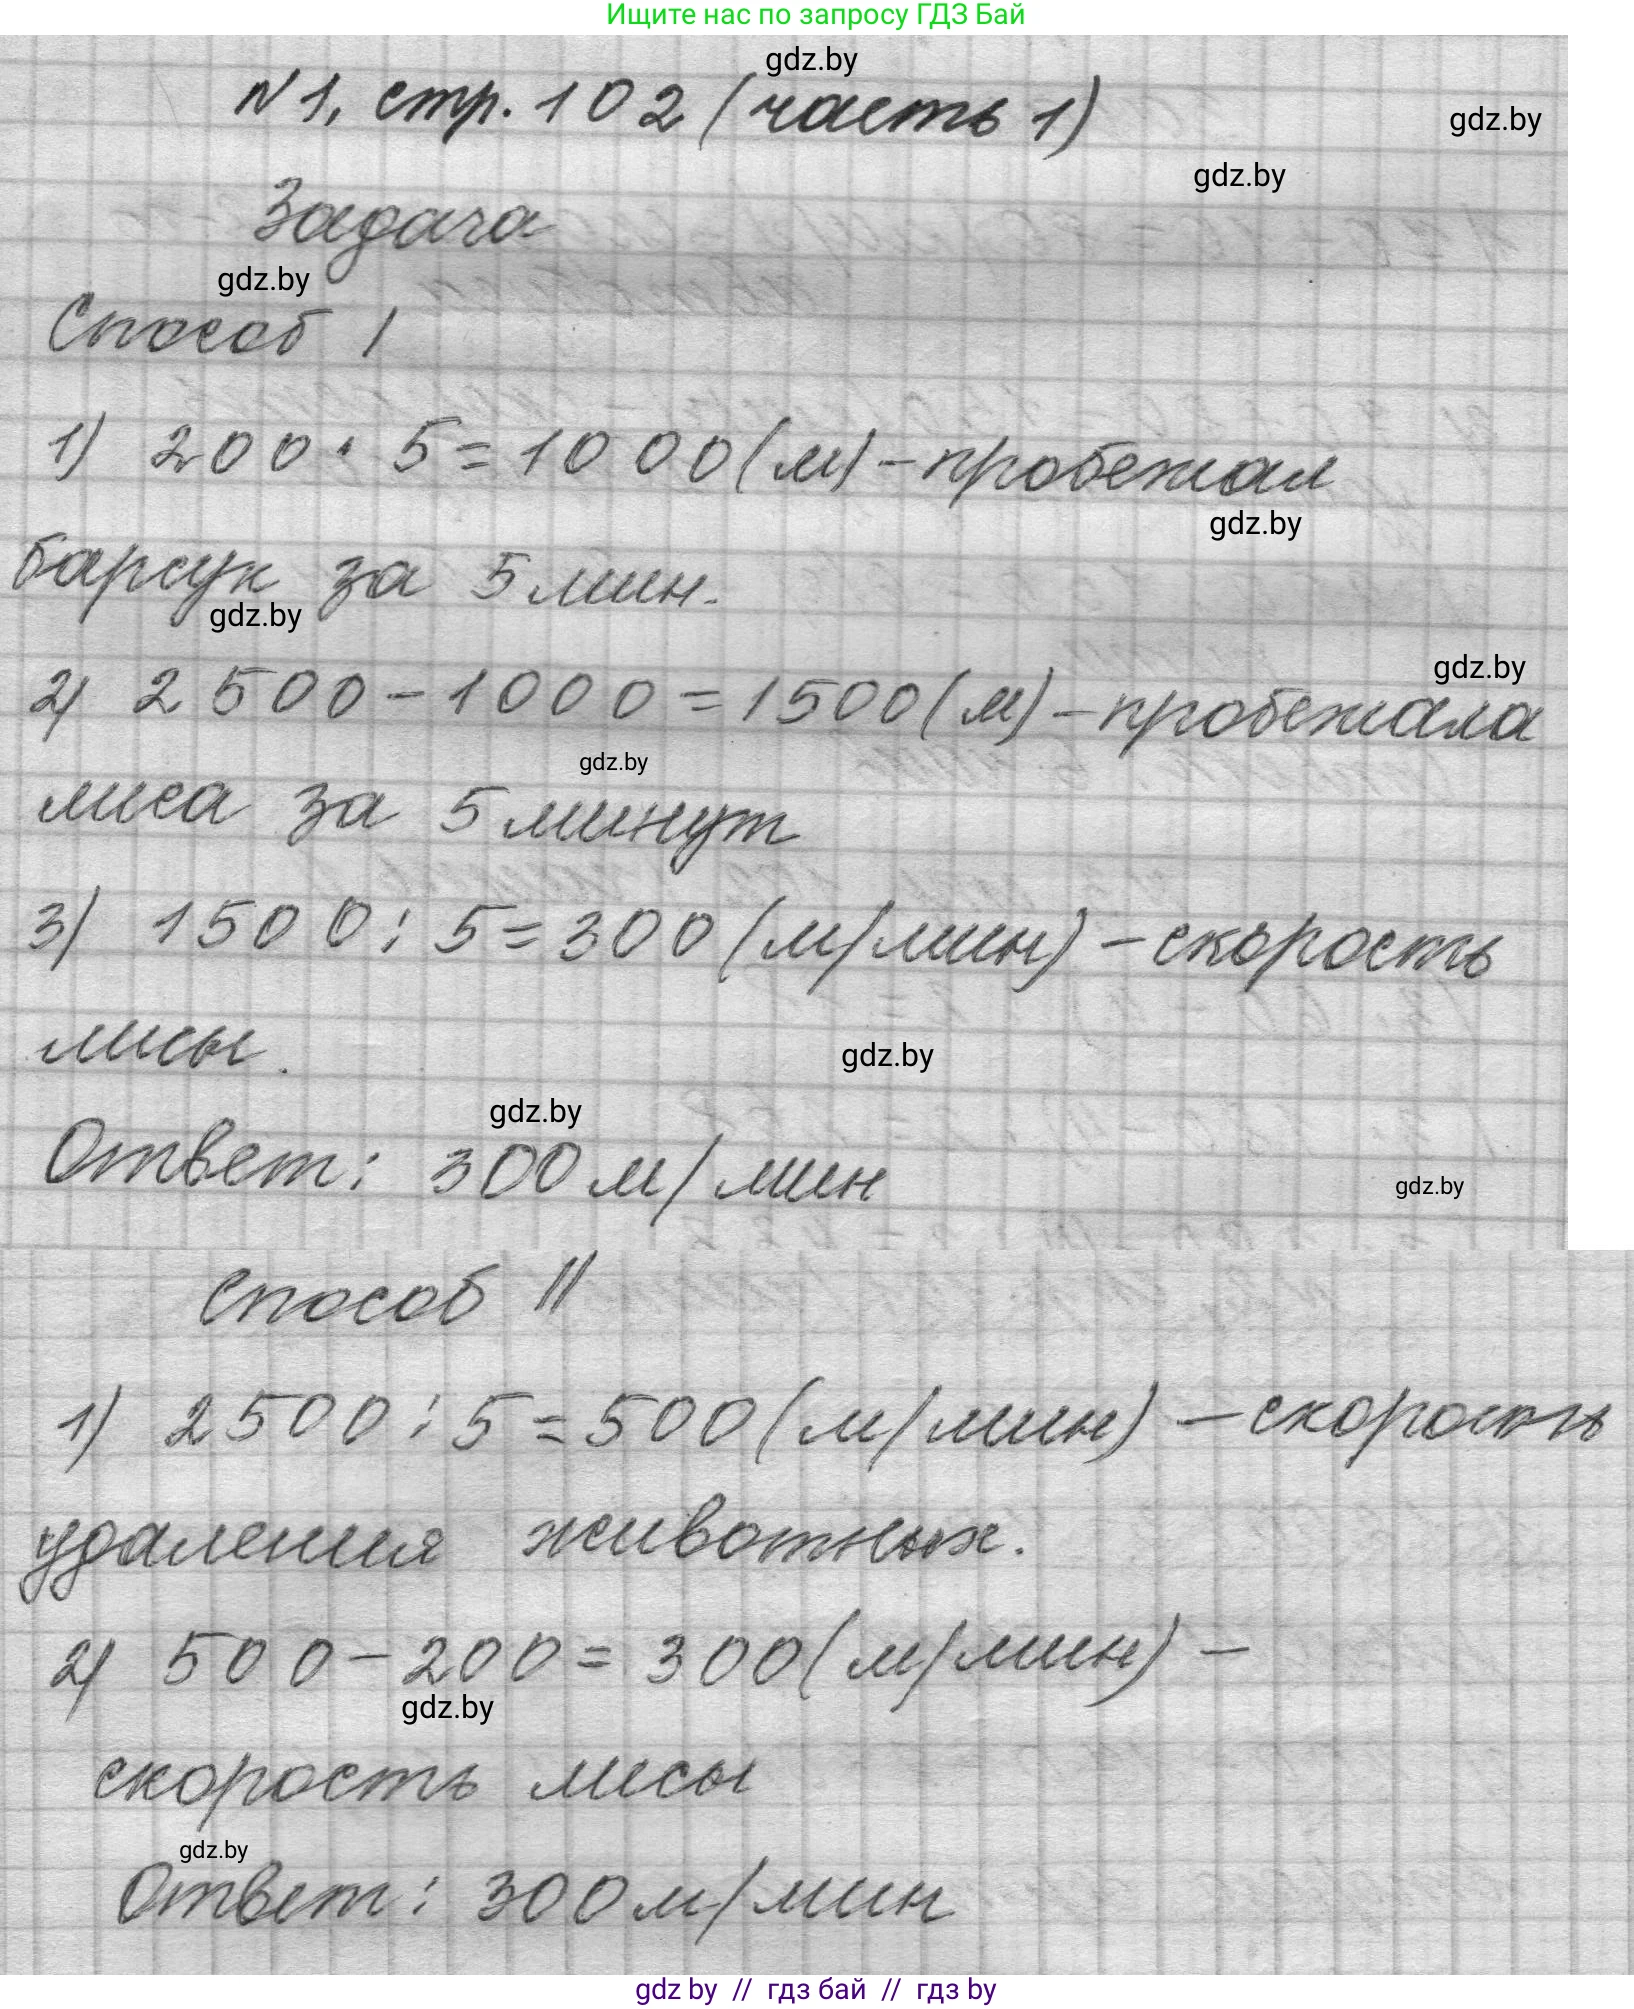 Ищите нас по запросу ГДЗ Бай
gdz.by
№1, стр. 102 (часть 1)
gdz.by
gdz.by
Задача
gdz.by
Способ I
1) 200 · 5 = 1000 (м) - пробежал
gdz.by
барсук за 5 мин.
gdz.by
gdz.by
2) 2500 - 1000 = 1500 (м) - пробежала
gdz.by
лиса за 5 минут
3) 1500 : 5 = 300 (м/мин) - скорость
лисы.
gdz.by
gdz.by
Ответ: 300 м/мин
gdz.by
Способ II
1) 2500 : 5 = 500 (м/мин) - скорость
удаления животных.
2) 500 - 200 = 300 (м/мин) -
gdz.by
скорость лисы
gdz.by
Ответ: 300 м/мин
gdz by // гдз бай // гдз by